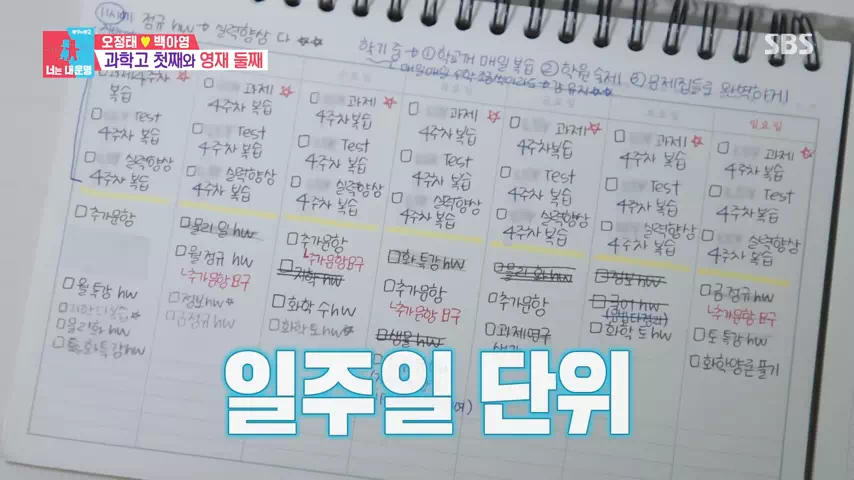 오정태♥백아영
과학고 첫째와 영재 둘째
너는 내 운명
SBS
정규 hw → 실력향상 다 ☆☆☆
학기 중 → ① 학교꺼 매일 복습 ② 학원 숙제 ③ 문제집들로 완벽하게!
일요일
복습
□ Test
4주차 복습
□ 실력향상
4주차 복습
추가문항
□ 월 특강 hw
□ 과제 ☆
4주차 복습
□ Test
4주차 복습
□ 실력향상
4주차 복습
□ 물리 일 hw
□ 월 정규 hw
↳추가문항 요구
□ 정보 hw
□ 금정규 hw
□ 과제 ☆
4주차 복습
□ Test
4주차 복습
□ 실력향상
4주차 복습
□ 추가문항
□ 지학 hw
□ 화학 수 hw
□ 화학 토 hw
□ 과제 ☆
4주차 복습
□ Test
4주차 복습
□ 실력향상
4주차 복습
□ 화특강 hw
□ 추가문항
□ 생물 hw
□ 과제 ☆
4주차 복습
□ Test
4주차 복습
□ 실력향상
4주차 복습
□ 물리 화 hw
□ 추가문항
□ 과제연구
□ 과제 ☆
4주차 복습
□ Test
4주차 복습
□ 실력향상
4주차 복습
□ 정보 hw
□ 국어 hw
□ 화학 토 hw
□ 과제 ☆
4주차 복습
□ Test
4주차 복습
□ 실력향상
4주차 복습
□ 금정규 hw
□ 토 특강 hw
□ 화학양론 풀기
일주일 단위